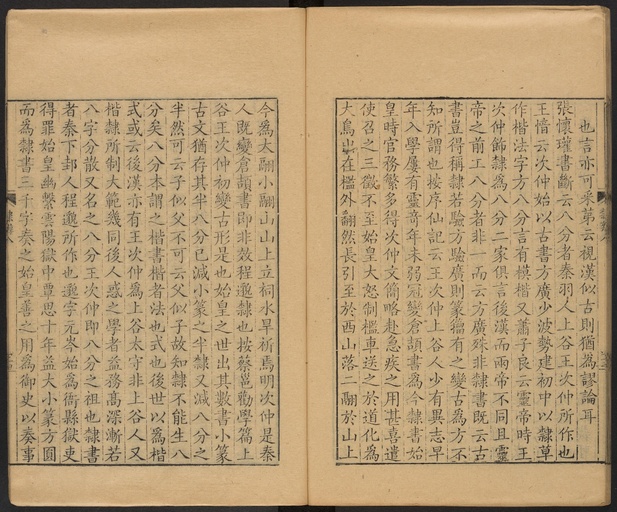 也言亦可采第云視漢似古則猶爲謬論耳
張懷瓘書斷云八分者秦羽人上谷王次仲所作也
王愔云次仲始以古書方廣少波勢建初中以隸草
作楷法字方八分言有模楷又蕭子良云靈帝時王
次仲飾隸爲八分二家俱言後漢而兩帝不同且靈
帝之前工八分者非一而云方廣殊非隸書既云古
書豈得稱隸若驗方廣則篆籀有之變古爲方不
知所謂也按序仙記云王次仲上谷人少有異志早
年入學屢有靈奇年未弱冠變倉頡書爲今隸書始
皇時官務繁多得次仲文簡略赴急疾之用甚喜遣
使召之三徵不至始皇大怒制檻車送之於道化爲
大鳥出在檻外翻然長引至於西山落二翮於山上
今爲大翮小翮山山上立祠水旱祈焉明次仲是秦
人既變倉頡書即非效程邈隸也按蔡邕勸學篇上
谷王次仲初變古形是也始皇之世出其數書小篆
古文猶存其半八分已減小篆之半隸又減八分之
半然可云子似父不可云父似子故知隸不能生八
分矣八分本謂之楷書楷者法也式也後世以爲楷
式或云後漢亦有王次仲爲上谷太守非上谷人又
楷隸所制大範幾同後人惑之學者益務高深漸若
八字分散又名之八分王次仲即八分之祖也隸書
者秦下邽人程邈所作也邈字元岑始爲衙縣獄吏
得罪始皇幽繫雲陽獄中覃思十年益大小篆方圓
而爲隸書三千字奏之始皇善之用爲御史以奏事